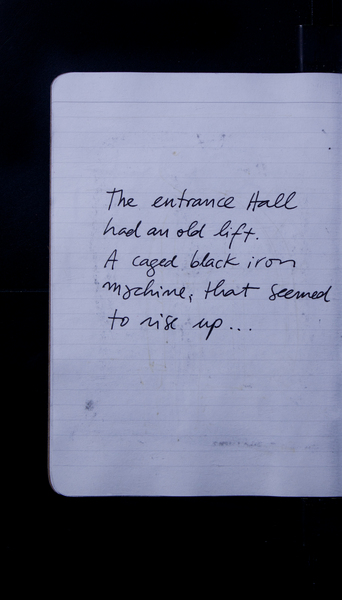 The entrance Hall
had an old lift.
A caged black iron
machine, that seemed
to rise up...